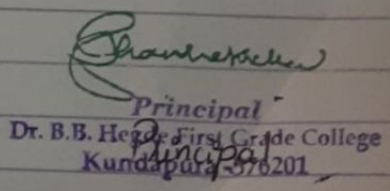 Principal
Dr. B.B. Hegde First Grade College
Principal
Kundapura-576201